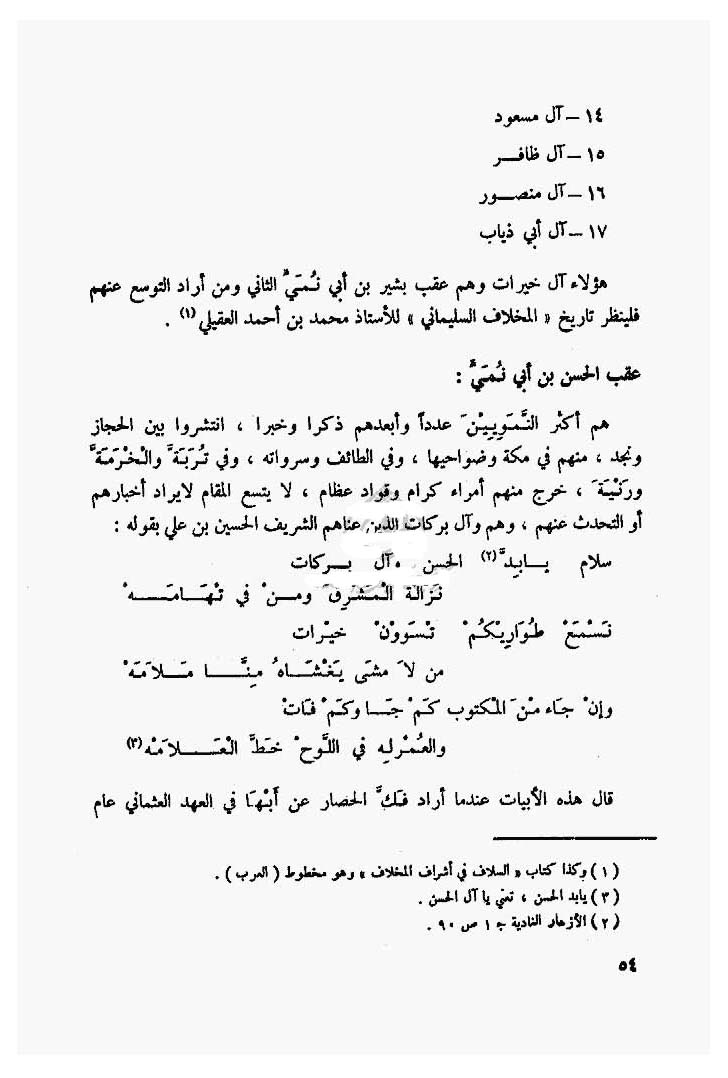 ١٤ – آل مسعود
١٥ – آل ظافـــر
١٦ – آل منصـــور
١٧ – آل أبي ذياب
هؤلاء آل خيرات وهم عقب بشير بن أبي نُمَيٍّ الثاني ومن أراد التوسع عنهم
فلينظر تاريخ « المخلاف السليماني » للأستاذ محمد بن أحمد العقيلي (١) .
عقب الحسن بن أبي نُمَيٍّ :
هم أكثر النَّمَوِيِيْنَ عدداً وأبعدهم ذكرا وخبرا ، انتشروا بين الحجاز
ونجد ، منهم في مكة وضواحيها ، وفي الطائف وسرواته ، وفي تُرَبَةَ والْخُرْمَةَ
ورَنْيَةَ ، خرج منهم أمراء كرام وقواد عظام ، لا يتسع المقام لايراد أخبارهم
أو التحدث عنهم ، وهم وآل بركات الذين عناهم الشريف الحسين بن علي بقوله :
سلام يـــابِدَّ (٢) الحسن وآل بـــركات
نَزَّالَةَ الْمَشْرِقْ ومـــنْ في تْهَـــامَـــهْ
نَسْمَعْ طْوَارِيْكُمْ تْسَوُّوْنْ خيْرات
من لاَ مشَى يَغْشَـــاهُ مِنَّـــا مَـــلاَمَهْ
وإنْ جَاء مْنَ الْمكتوب كَمْ جَـــا وكَمْ فَاتْ
والعُمْرلِه في اللَّوحْ خَطَّ الْعَـــلاَمَهْ (٣)
قال هذه الأبيات عندما أراد فَكَّ الحصار عن أَبْهَا في العهد العثماني عام
( ١ ) وكذا كتاب « السلاف في أشراف المخلاف » وهو مخطوط ( العرب ) .
( ٣ ) يابد الحسن ، تعني يا آل الحسن .
( ٢ ) الأزهار النادية جـ ١ ص ٩٠ .
٥٤